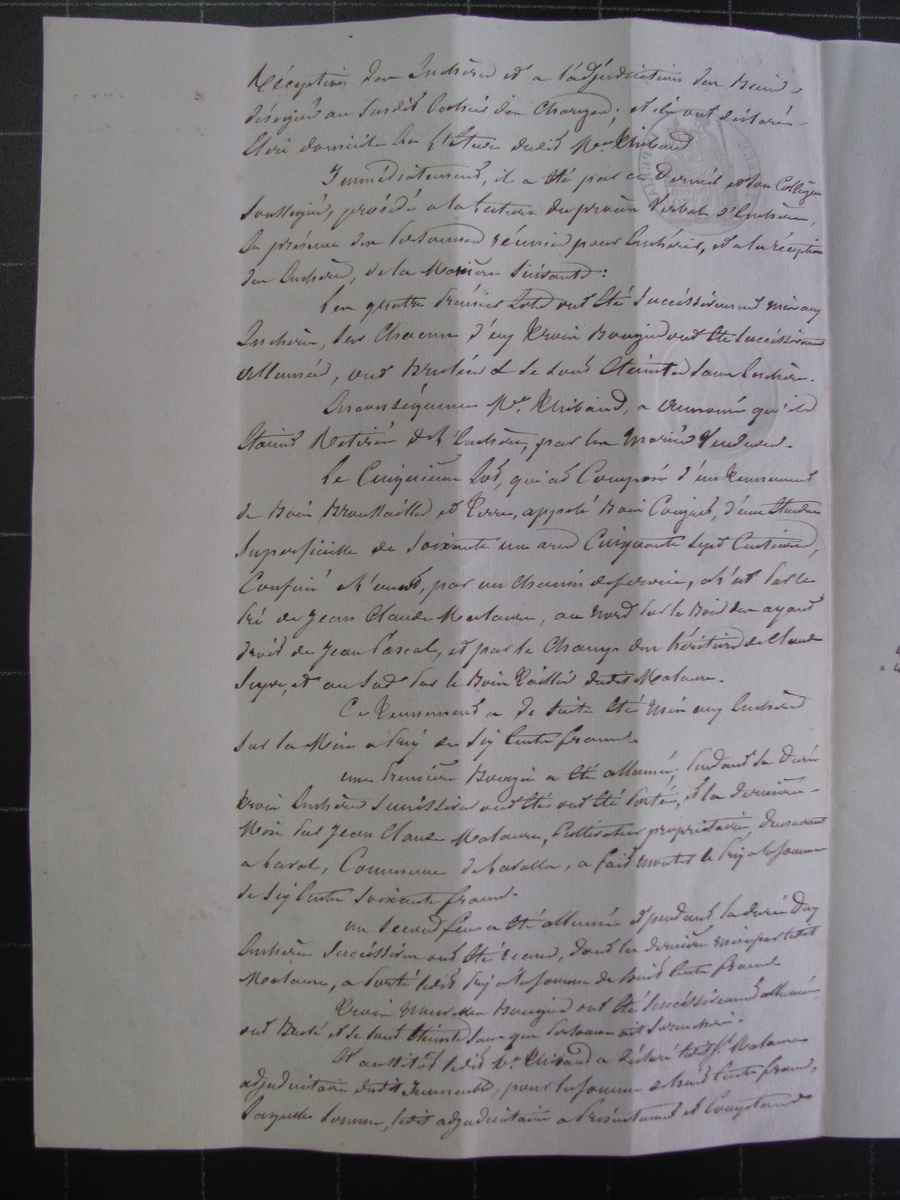 Réception des Enchères et a l'adjudication des Biens
désignés au susdit Cahier des Charges; et ils ont déclaré
Elire domicile en l'Etude dudit Me Thibaud
Immédiatement, il a été par ce Dernier et son Collègue
Soussigné, procédé a la lecture du procès Verbal d'Enchères,
En présence des personnes réunies pour Enchérir, et a la réception
des Enchères, de la Manière Suivante:
Les quatre premiers Lots ont été Successivement mis aux
Enchères, sur Chacun d'eux trois Bougies ont été Successivement
allumées, ont Brulées & se sont Eteintes sans Enchères.
En conséquence Me Thibaud, a annoncé qu'ils
Etaient Retirés de l'Enchère, par les Mariés Vendeurs.
Le Cinquième Lot, qui est Composé d'un Tennement
de Bois Broussailles et Terre, appelé Bois Coujat, d'une Etendue
Superficielle de Soixante un ares Cinquante Sept Centiares,
Confiné a l'ouest, par un Chemin de service, a l'est par le
Pré de Jean Claude Mataure, au nord par le Bois des ayant
droit de Jean Pascal, et par le Champ des héritiers de Claude
Supre, et au Sud par le Bois Taillis dudit Mataure.
Ce Tennement a de suite été mis aux Enchères
sur la Mise a Prix de Six Cents francs
une première Bougie a été allumée, pendant sa Durée
trois Enchères Successives ont été ont été portées, et la dernière
Mise par Jean Claude Mataure, Cultivateur propriétaire, demeurant
a Laval, Commune de Lavalla, a fait monter le Prix a la somme
de Six Cents Soixante francs
un Second feu a été allumé et pendant sa durée Deux
Enchères Successives ont été reçues, dont la dernière mise par ledit
Mataure, a porté ledit Prix a la somme de huit Cents francs
trois nouvelles Bougies ont été Successivement allumées
ont Brulé et se sont Eteintes sans que personne ait surenchéri.
Et aussitôt ledit Me Thibaud a déclaré ledit Sr Mataure
adjudicataire dudit Immeuble, pour la somme de huit Cents francs,
Laquelle Somme, ledit adjudicataire a Présentement et Comptant